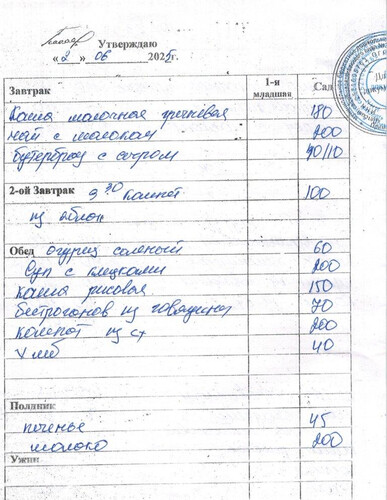 Утверждаю
« 2 » 06 2025г.
Завтрак 1-я младшая Сад
Каша молочная гречневая 180
чай с молоком 200
бутерброд с сыром 40/10
2-ой Завтрак 9 30 Компот 100
из яблок
Обед огурец соленый 60
Суп с клецками 200
каша рисовая 150
бестроганов из говядины 70
компот из с/х 200
хлеб 40
Полдник
печенье 45
молоко 200
Ужин